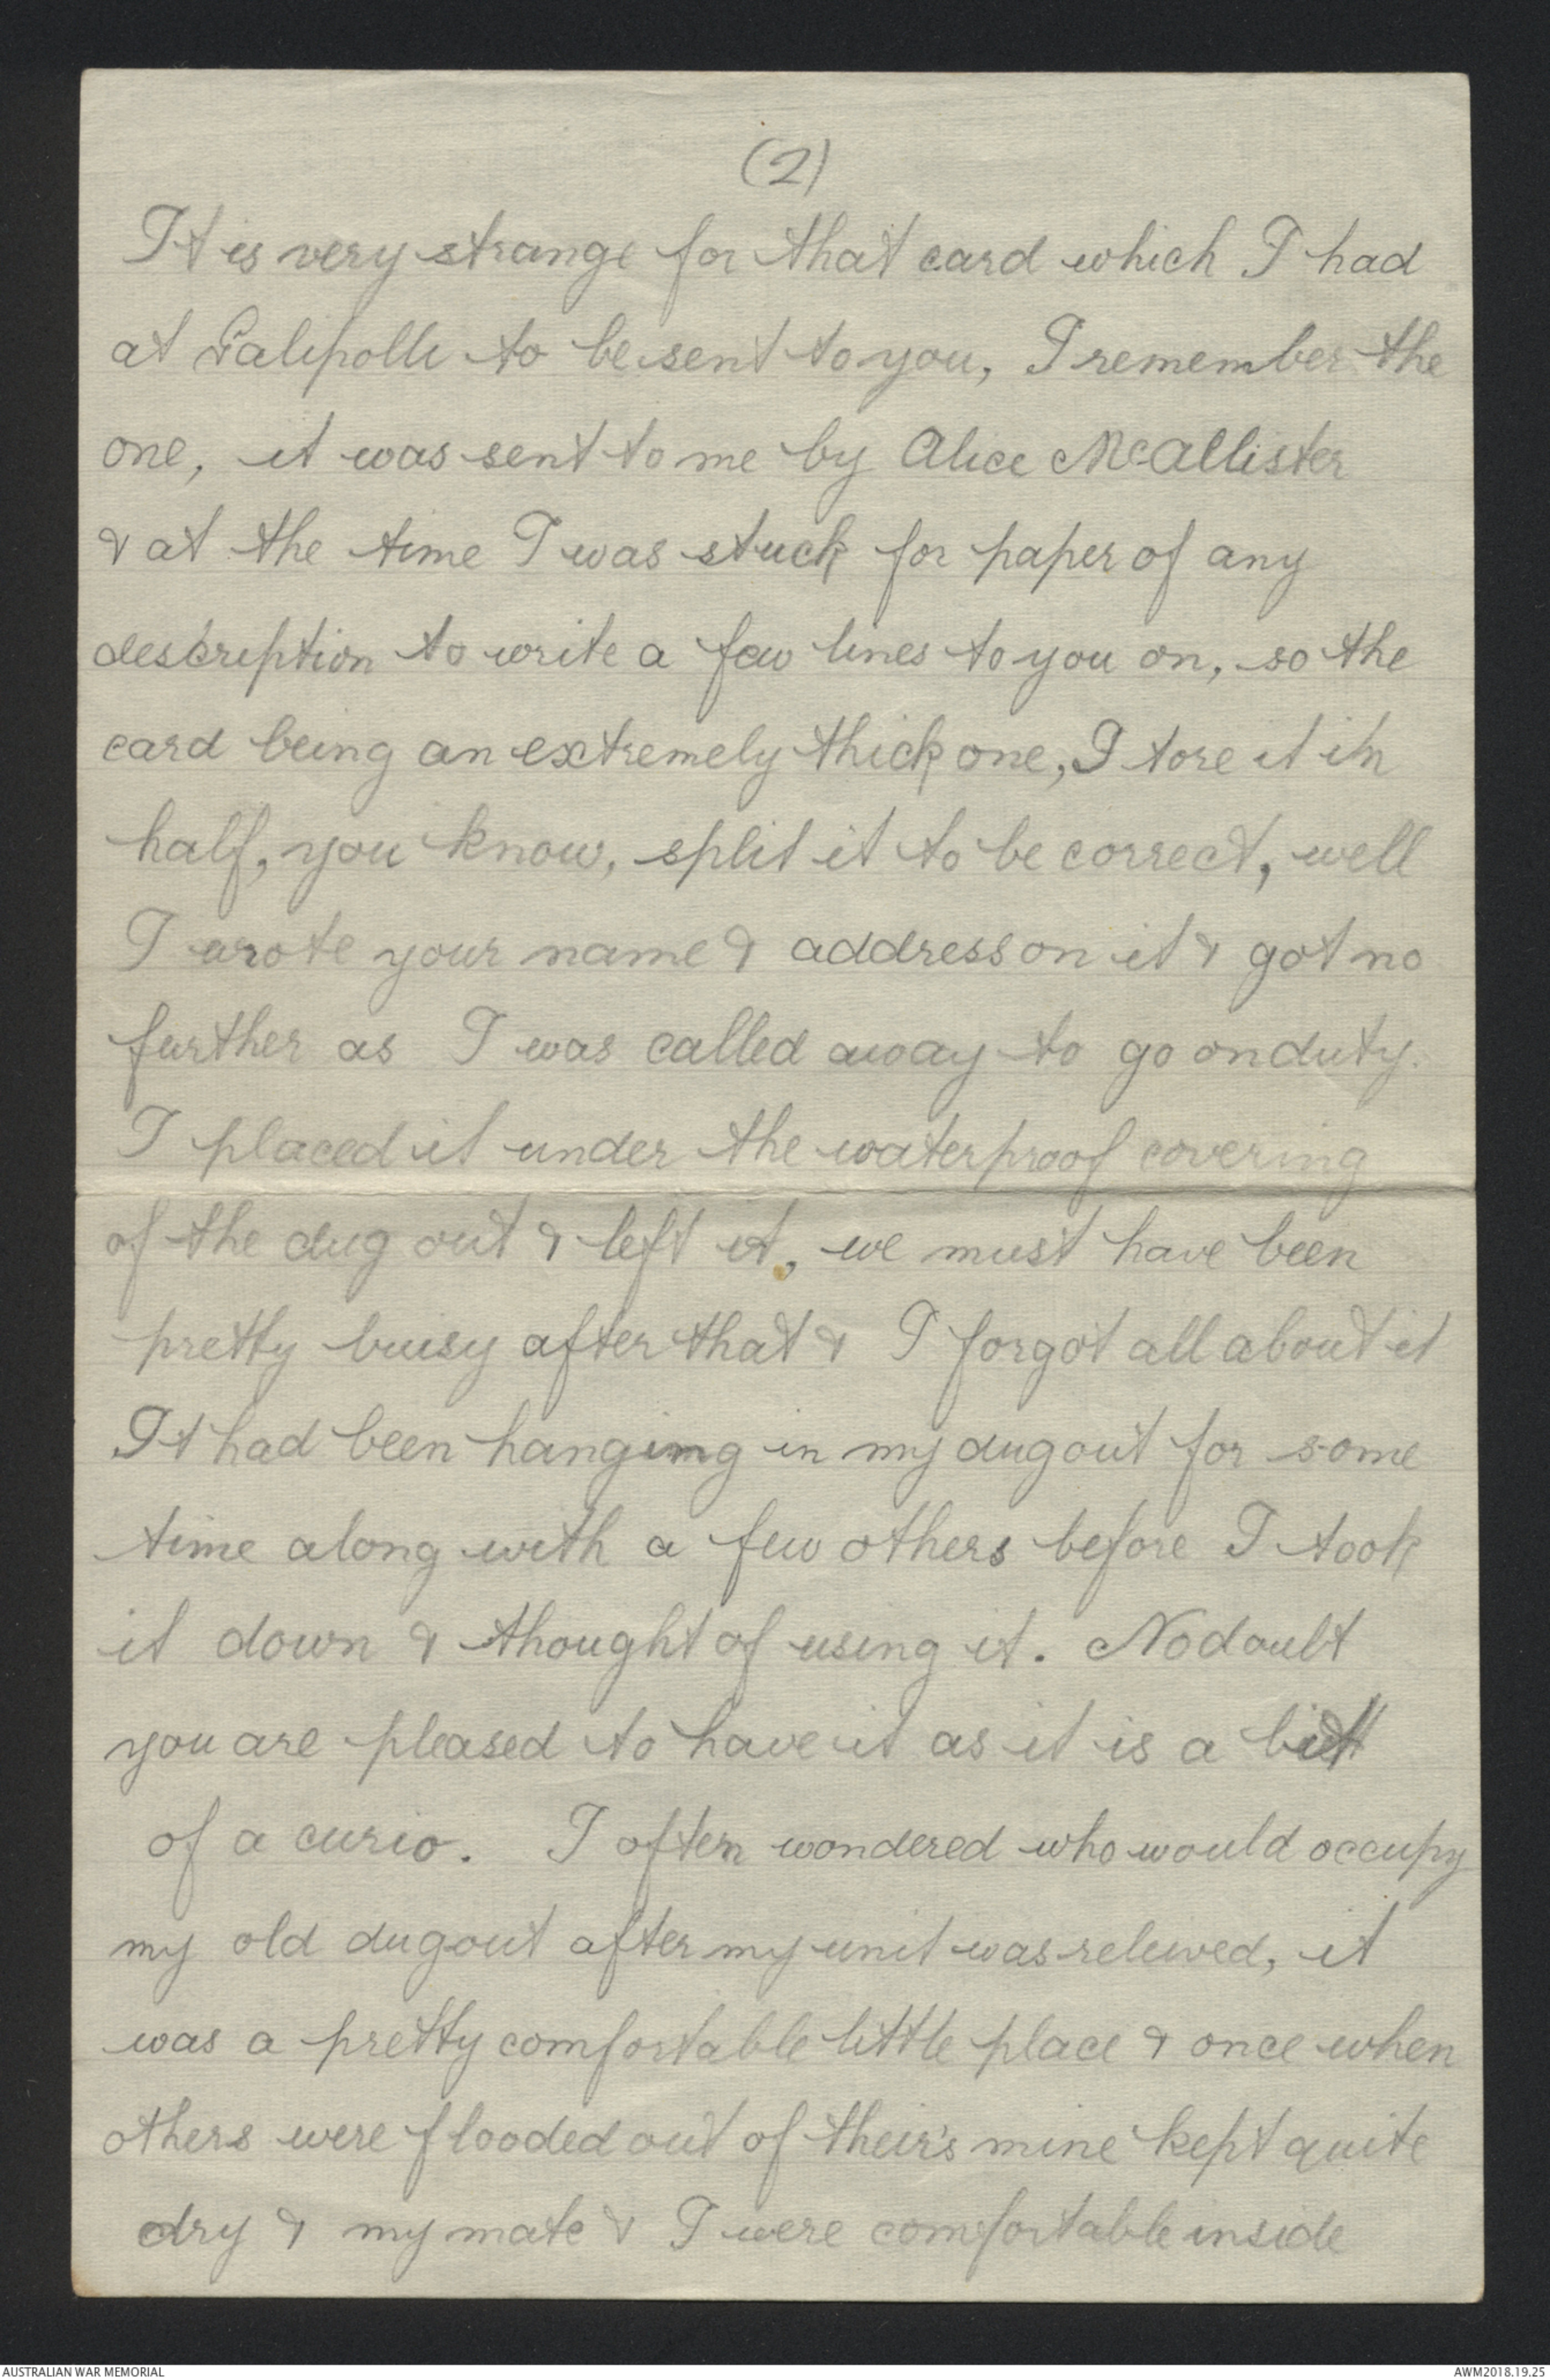 (2)
It is very strange for that card which I had
at Galipolli to be sent to you, I remember the
one, it was sent to me by Alice McAllister
& at the time I was stuck for paper of any
description to write a few lines to you on, so the
card being an extremely thick one, I tore it in
half, you know, split it to be correct, well
I wrote your name & address on it & got no
further as I was called away to go on duty.
I placed it under the waterproof covering
of the dug out & left it, we must have been
pretty buisy after that & I forgot all about it
It had been hanging in my dugout for some
time along with a few others before I took
it down & thought of using it. No doubt
you are pleased to have it as it is a bit
of a curio. I often wondered who would occupy
my old dugout after my unit was releived, it
was a pretty comfortable little place & once when
others were flooded out of their's mine kept quite
dry & my mate & I were comfortable inside
AUSTRALIAN WAR MEMORIAL
AWM2018.19.25